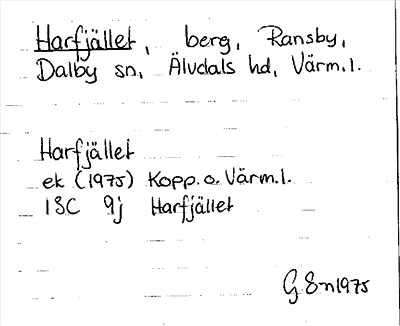 Harfjället, berg, Ransby,
Dalby sn, Älvdals hd, Värm.l.
Harfjället
ek (1975) Kopp. o. Värm.l.
13C 9j Harfjället
G Sm 1975